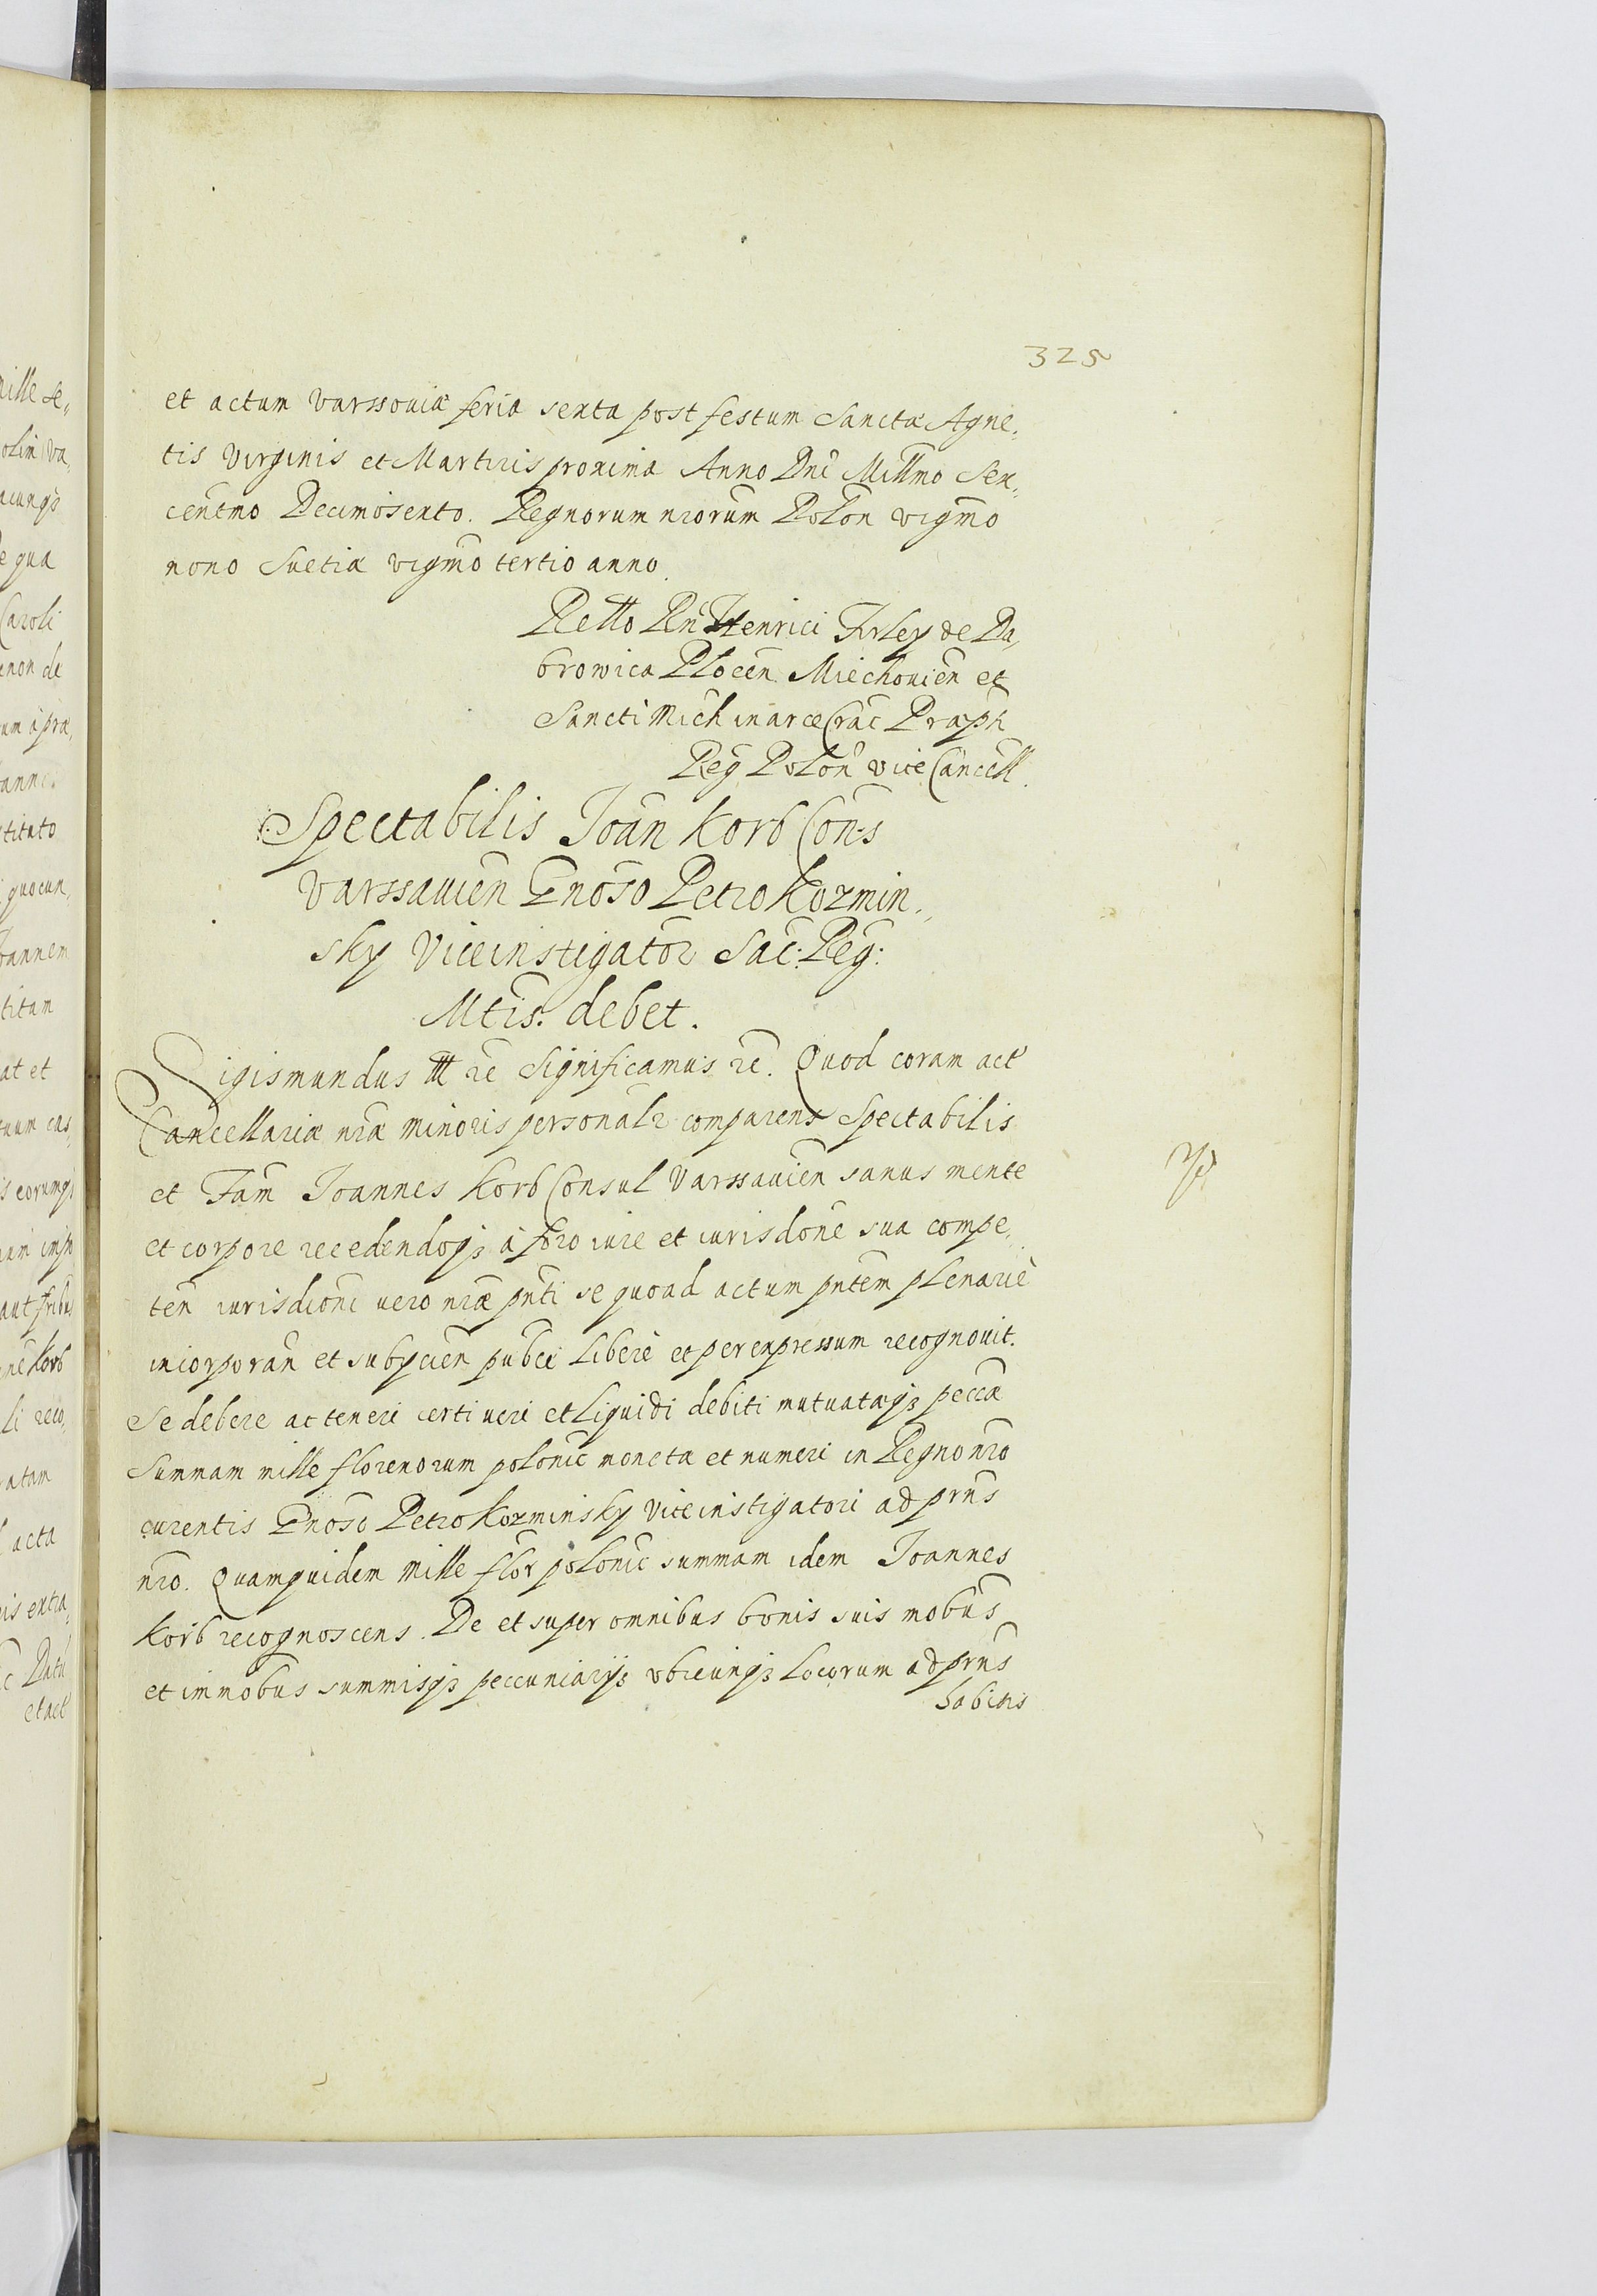 325
et actum varssoviæ feria sexta post festum Sanctæ Agne,
tis virginis et Martiris proxima Anno Dni Millmo Sex,
centmo Decimosexto. Regnorum nrorum Polon vigmo
nono Suetiæ vigmo tertio anno.
Rctto Rn Henrici Firley de Da,
browica Plocen Miechovien et
Sancti Mich in arce Crac Præp
Reg Polon vice Cancell.
Spectabilis Joan Korb Cons
varssavien Gnoso Petro Kozmin,
sky Viceinstigator Sac: Reg:
Mtis. debet.
Sigismundus III etc Significamus etc. Quod coram act
Cancellariæ nræ minoris personalr comparens Spectabilis
et Fam Joannes Korb Consul Varssavien sanus mente
et corpore recedendoqz à foro iure et iurisdone sua compe,
ten iurisdioni vero nræ pnti se quoad actum pntem plenariè
incorporan et subycien publce liberè et per expressum recognovit.
Se debere ac teneri certi veri et liquidi debiti mutuatæqz peccæ
Summam mille florenorum polonic moneta et numeri in Regno nro
currentis Gnoso Petro Kozminsky Viceinstigatori ad prns
nro. Quamquidem mille flor polonic summam idem Joannes
Korb recognoscens. De et super omnibus bonis suis mobus
et immobus summisqz peccuniarijs vbicunqz locorum ad prns
habitis
mille se,
olim va,
e qua
Caroli
um à præ,
stituto
quocun,
oannem
titam
at et
is eorumqz
ne Korb
li reco,
ratam
acta
is extra,
et act